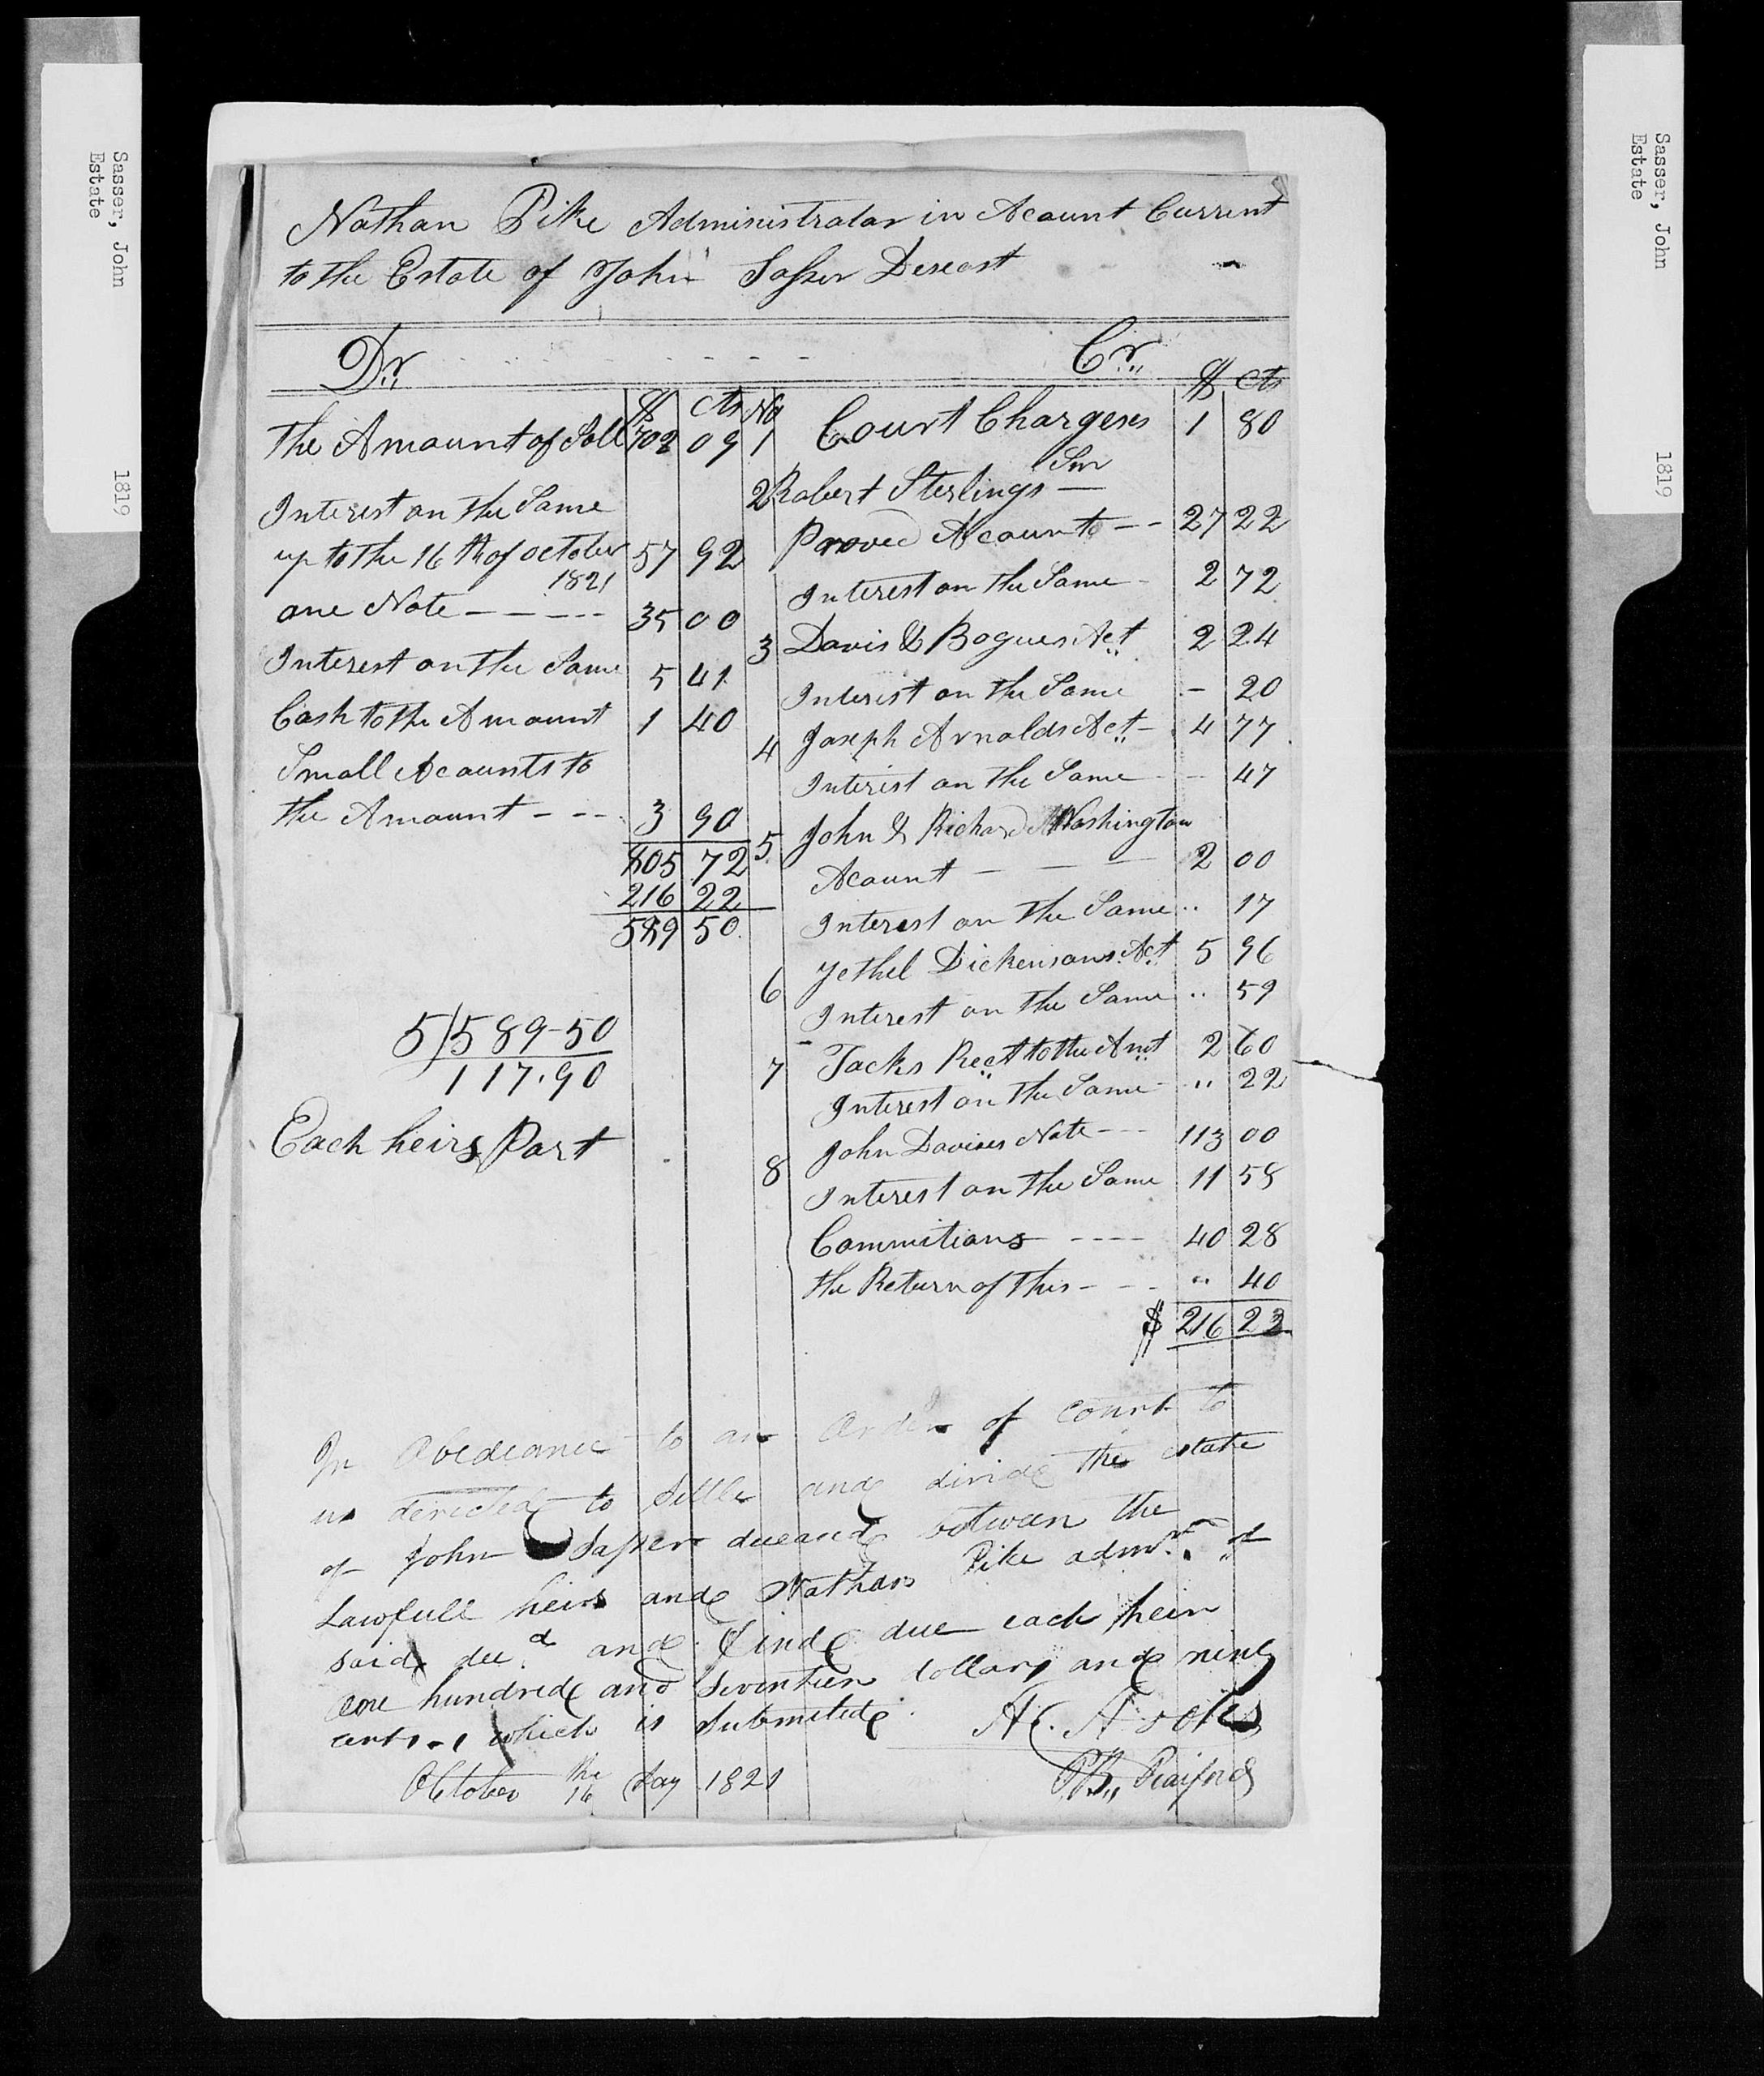 Sasser, John
Estate
1819
Nathan Pike Administrator in Acount Current
to the Estate of John Sasser Deseast
Dr
$ cts
The Amount of Sall 702 09
Interest on the Same
up to the 16th of october 57 92
1821
one Note - - - - 35 00
Interest on the Same 5 41
Cash to the Amount 1 40
Small Acounts to
the Amount - - - 3 90
805 72
216 22
589 50
5/589-50
117.90
Each heirs Part
Cr
No $ cts
1 Court Charges 1 80
Snr
2 Robert Sterlings -
Proved Acount - - 27 22
Interest on the Same - 2 72
3 Davis & Bogues Act 2 24
Interest on the Same - 20
4 Joseph Arnolds Act - 4 77
Interest on the Same - - 47
5 John & Richard Washington
Acount - - - 2 00
Interest on the Same .. 17
6 Jethel Dickensons Act 5 96
Interest on the Same .. 59
7 Jacks Rect to the Amt 2 60
Interest on the Same - .. 22
8 John Davises Note - - - 113 00
Interest on the Same 11 58
Commitions - - - - 40 28
the Return of this - - - .. 40
$ 216 22
In Obedeance to an Order of Court to
us derected to Settle and divide the estate
of John Sasser deceasd between the
Lawfull heirs and Nathan Pike admr. of
said decd and find due each heir
one hundred and Seventeen dollars and nine
cents - which is Submited.
October the 16 day 1821
Sasser, John
Estate
1819